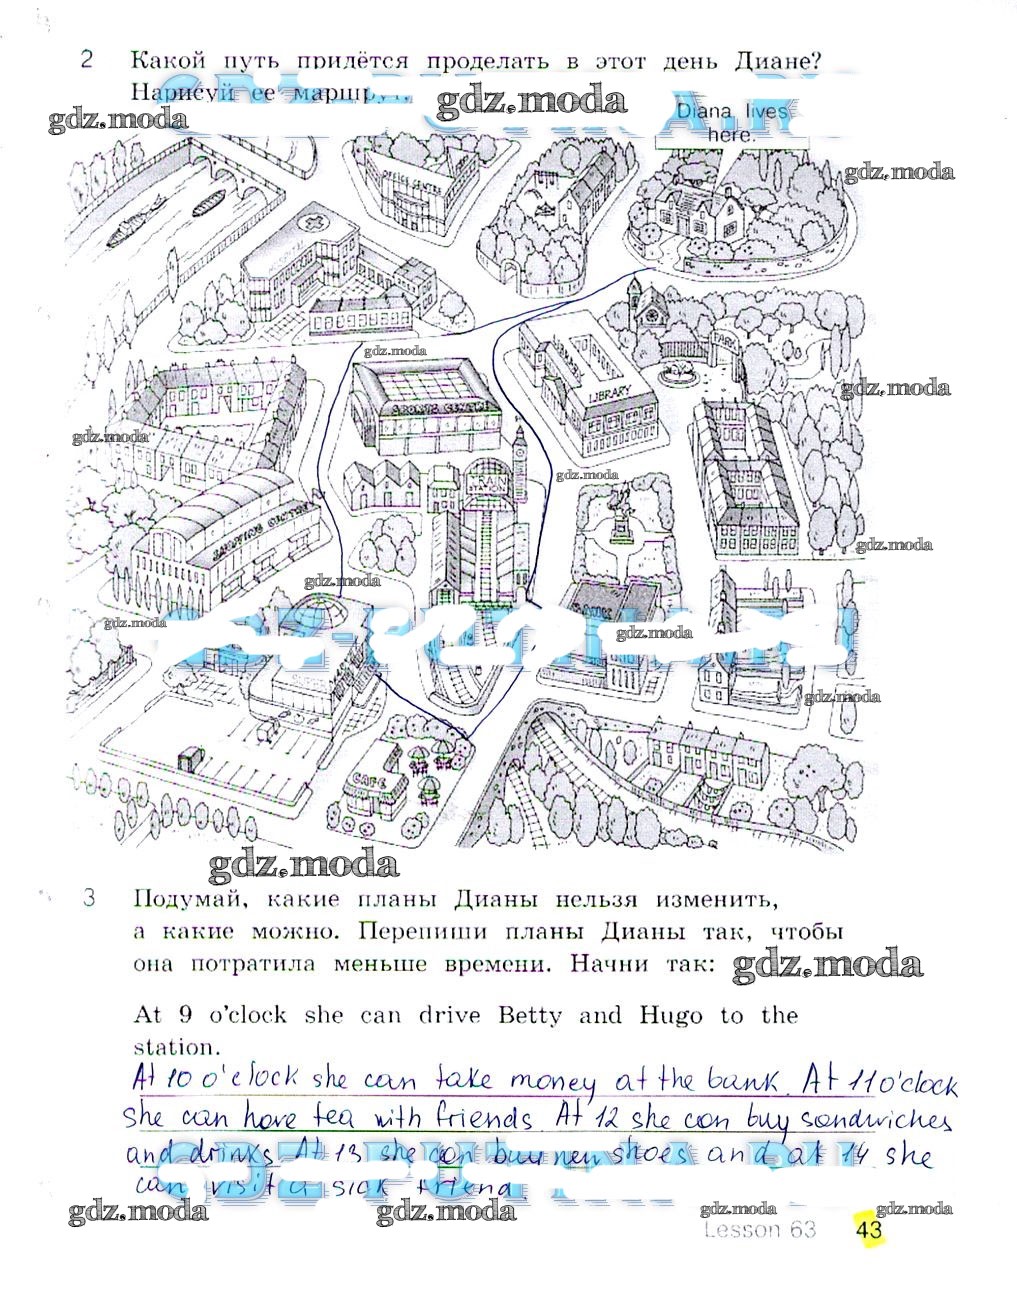 2 Какой путь придётся проделать в этот день Диане?
Нарисуй ее
gdz.moda
gdz.moda
Diana lives
here.
gdz.moda
OFFICE CENTRE
PARK
LIBRARY
gdz.moda
SPORTS CENTRE
gdz.moda
gdz.moda
gdz.moda
TRAIN
STATION
SHOPPING CENTRE
gdz.moda
gdz.moda
BANK
gdz.moda
gdz.moda
gdz.moda
CAFE
gdz.moda
3 Подумай, какие планы Дианы нельзя изменить,
а какие можно. Перепиши планы Дианы так, чтобы
она потратила меньше времени. Начни так:
gdz.moda
At 9 o'clock she can drive Betty and Hugo to the
station.
At 10 o'clock she can take money at the bank. At 11 o'clock
she can have tea with friends. At 12 she can buy sandwiches
and drinks. At 13 she can buy new shoes and at 14 she
can visit a sick friend.
gdz.moda
gdz.moda
gdz.moda
gdz.moda
Lesson 63 43